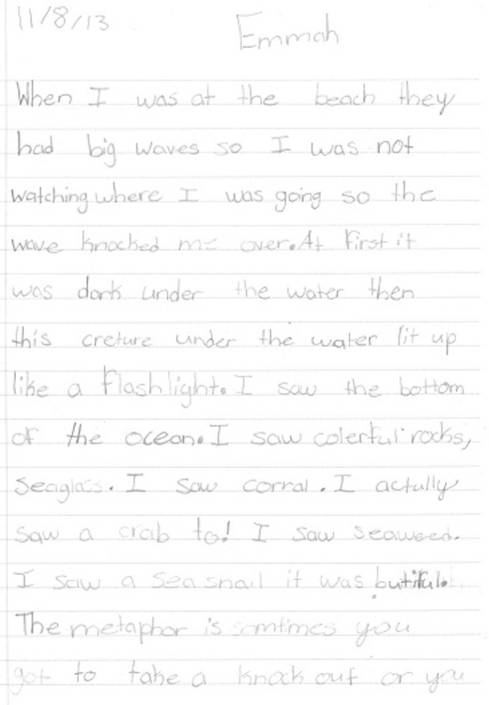 11/8/13
Emmah
When I was at the beach they
had big waves so I was not
watching where I was going so the
wave knocked me over. At first it
was dark under the water then
this creture under the water lit up
like a flashlight. I saw the bottom
of the ocean. I saw colerful rocks,
seaglass. I saw corral. I actully
saw a crab to! I saw seaweed.
I saw a sea snail it was butiful.
The metaphor is somtimes you
got to take a knock out or you